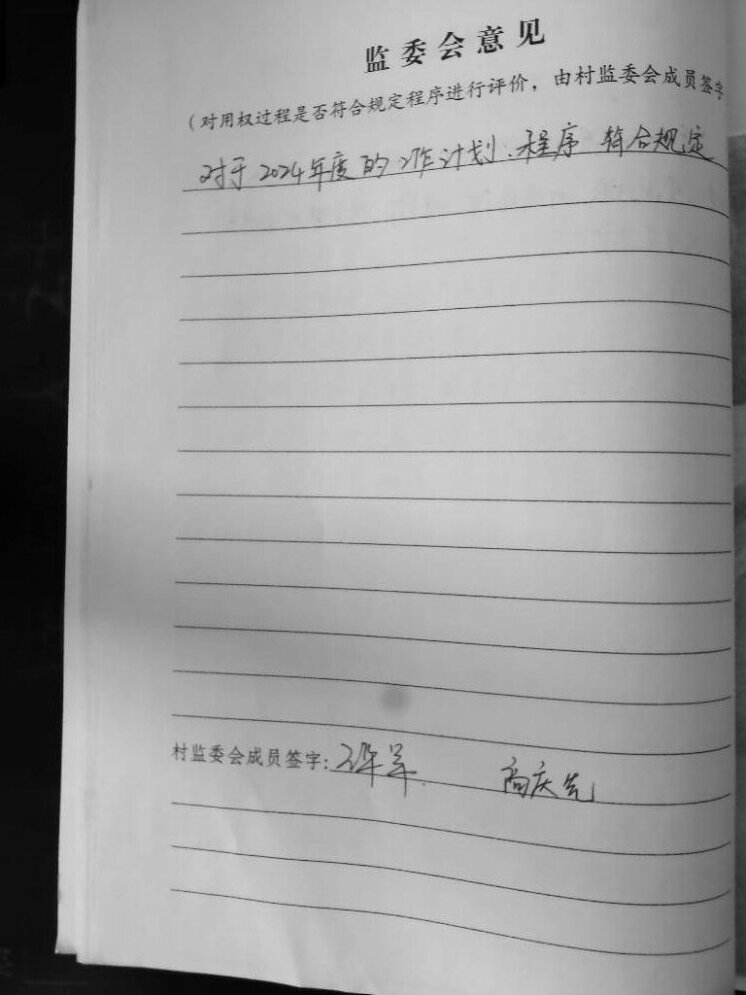 监委会意见
（对用权过程是否符合规定程序进行评价，由村监委会成员签字
对于2024年度的工作计划、程序 符合规定
村监委会成员签字： 高庆先